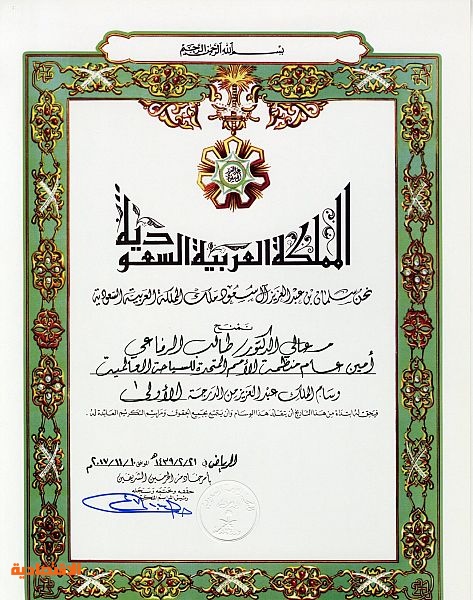 بسم الله الرحمن الرحيم
المملكة العربية السعودية
نحن سلمان بن عبدالعزيز آل سعود ملك المملكة العربية السعودية
نمنح
معالي الدكتور طالب الرفاعي
أمين عام منظمة الأمم المتحدة للسياحة العالمية
وسام الملك عبدالعزيز من الدرجة الأولى
فيحق له ابتداءً من هذا التاريخ أن يتقلد هذا الوسام وأن يتمتع بجميع الحقوق ومراسم التكريم العائدة له.
الرياض في ١٤٣٩/٢/٢١هـ الموافق ٢٠١٧/١١/١٠م
بأمر خادم الحرمين الشريفين
حققه وختمه وسجله
رئيس المراسم الملكية
الاقتصادية